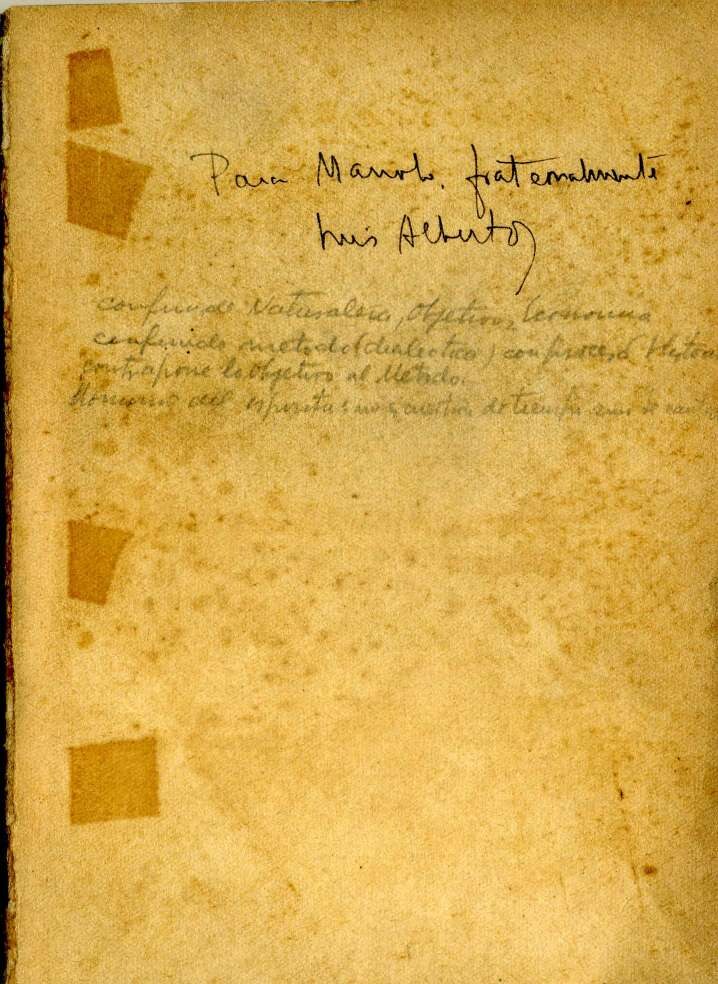 Para Manolo, fraternalmente
Luis Alberto
confunde Naturaleza, Objetivo, Economia
confunde metodo (dialectica) con
contrapone lo objetivo al Metodo.
del espiritu: no es cuestion de tiempo sino de